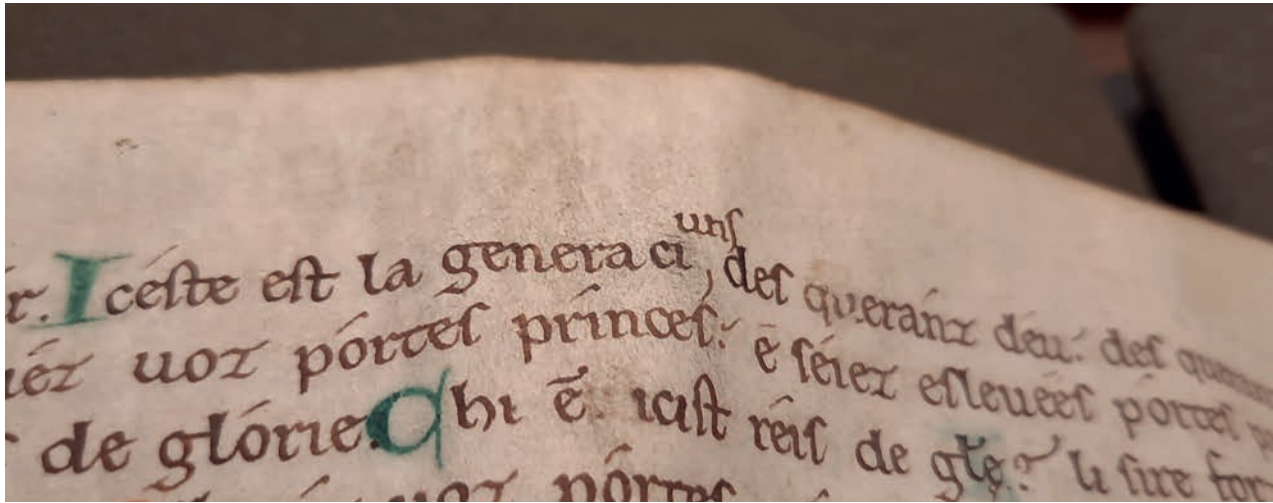 r. Iceste est la generaciuns, des queránz deu: des quer
iéz uoz pórtes prínces: ē séiez esleuées pórtes
de glórie. Qhi ē icist réis de glę? li sire for
uoz pórtes